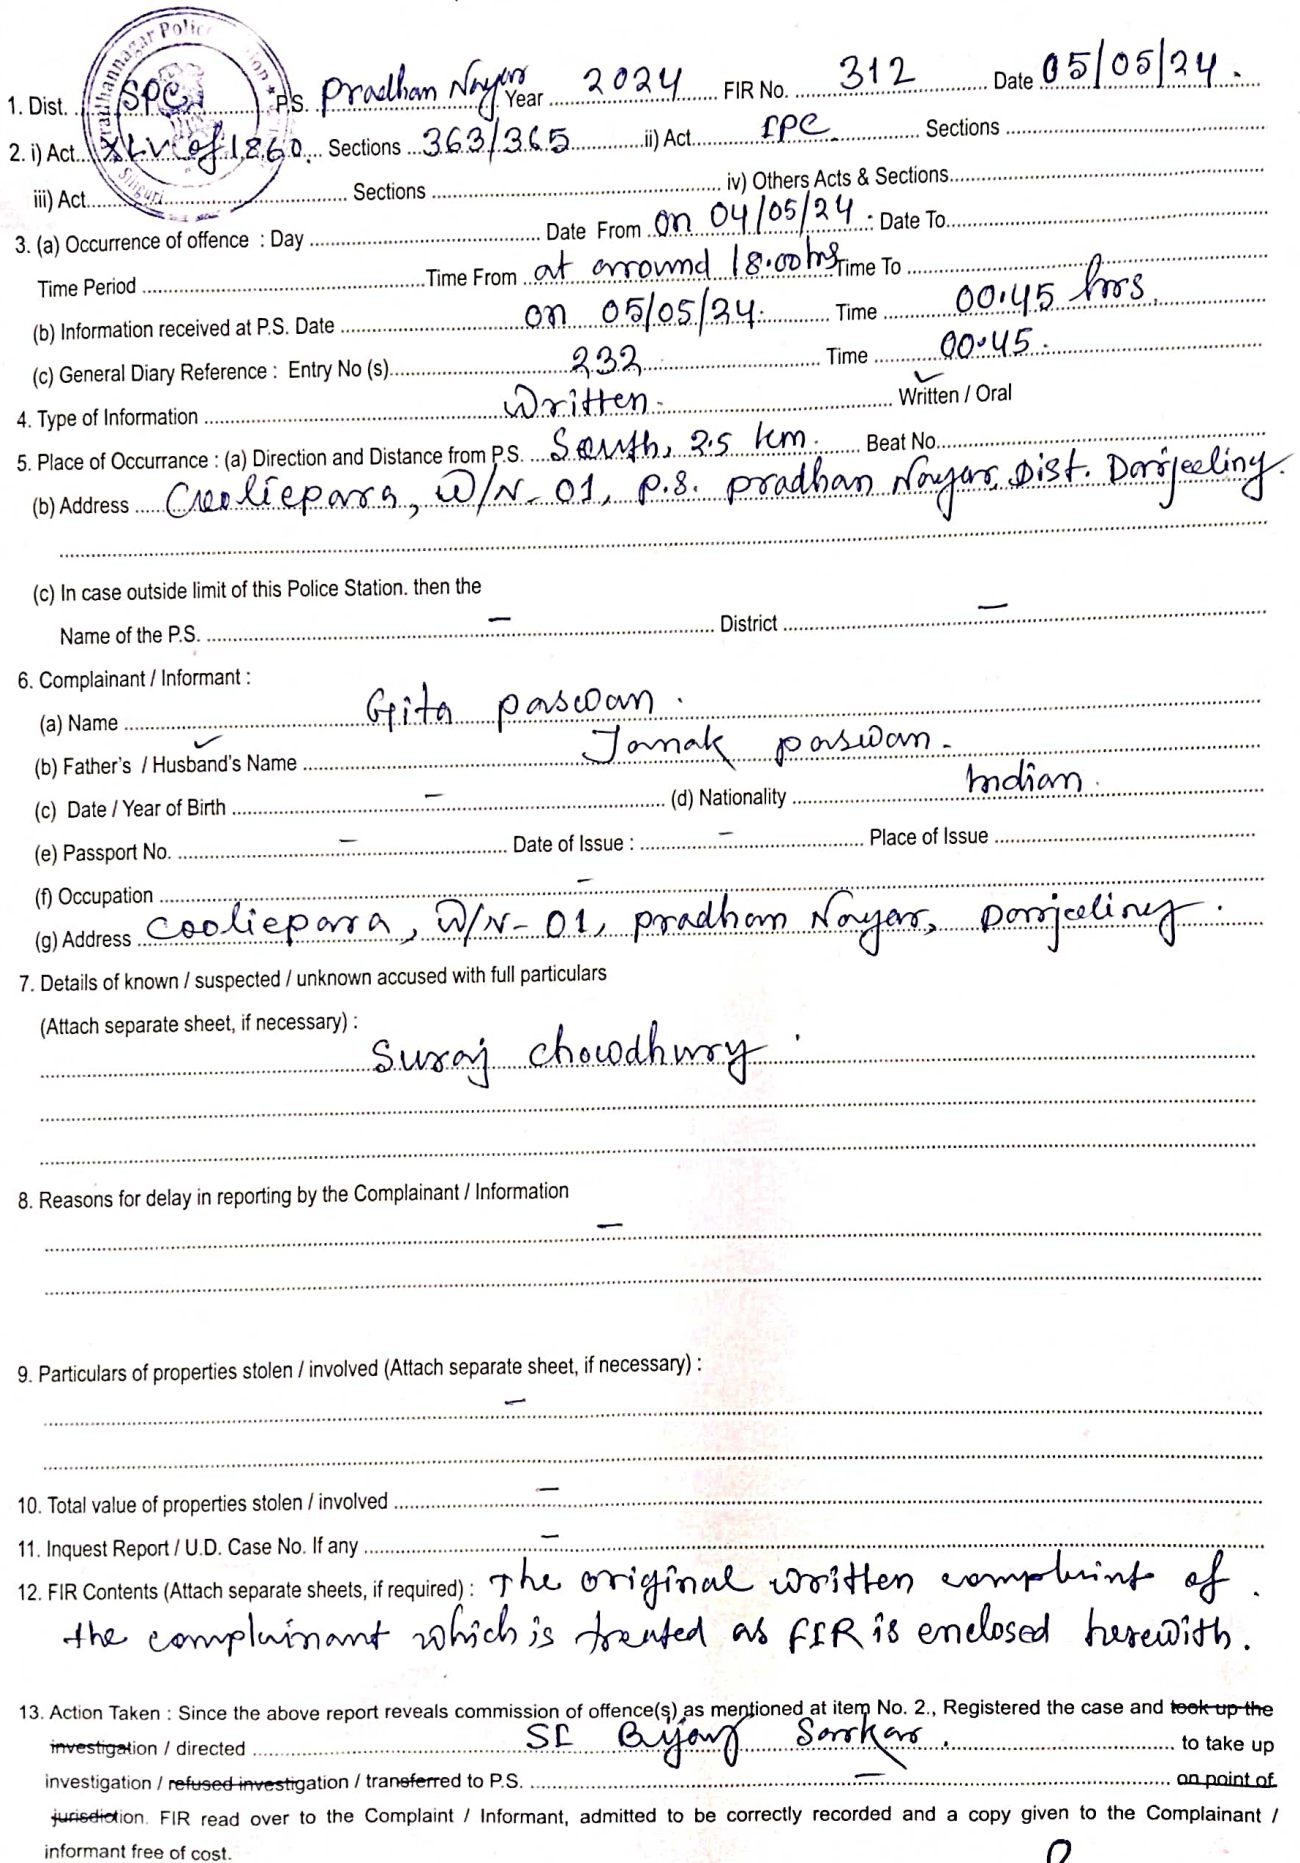 Pradhannagar Police Station ★ Siliguri
1. Dist. SPC P.S. Pradhan Nagar Year 2024 FIR No. 312 Date 05/05/24.
2. i) Act XLV of 1860. Sections 363/365 ii) Act IPC Sections
iii) Act Sections iv) Others Acts & Sections
3. (a) Occurrence of offence : Day Date From on 04/05/24. Date To
Time Period Time From at arround 18.00 hrs Time To
(b) Information received at P.S. Date on 05/05/24. Time 00.45 hrs
(c) General Diary Reference : Entry No (s) 232 Time 00.45.
4. Type of Information Written. Written / Oral
5. Place of Occurrance : (a) Direction and Distance from P.S. South, 2.5 km. Beat No.
(b) Address Cooliepara, W/N-01, P.S. Pradhan Nagar, Dist. Darjeeling.
(c) In case outside limit of this Police Station. then the
Name of the P.S. – District –
6. Complainant / Informant :
(a) Name Gita Paswan.
(b) Father's / Husband's Name Janak Paswan.
(c) Date / Year of Birth – (d) Nationality Indian.
(e) Passport No. – Date of Issue : – Place of Issue
(f) Occupation –
(g) Address Cooliepara, W/N-01, Pradhan Nagar, Darjeeling.
7. Details of known / suspected / unknown accused with full particulars
(Attach separate sheet, if necessary) :
Suraj Chowdhury.
8. Reasons for delay in reporting by the Complainant / Information
–
9. Particulars of properties stolen / involved (Attach separate sheet, if necessary) :
–
10. Total value of properties stolen / involved –
11. Inquest Report / U.D. Case No. If any –
12. FIR Contents (Attach separate sheets, if required) : The original written complaint of
the complainant which is treated as FIR is enclosed herewith.
13. Action Taken : Since the above report reveals commission of offence(s) as mentioned at item No. 2., Registered the case and took up the
investigation / directed SI Bijoy Sarkar. to take up
investigation / refused investigation / transferred to P.S. – on point of
jurisdiction. FIR read over to the Complaint / Informant, admitted to be correctly recorded and a copy given to the Complainant /
informant free of cost.